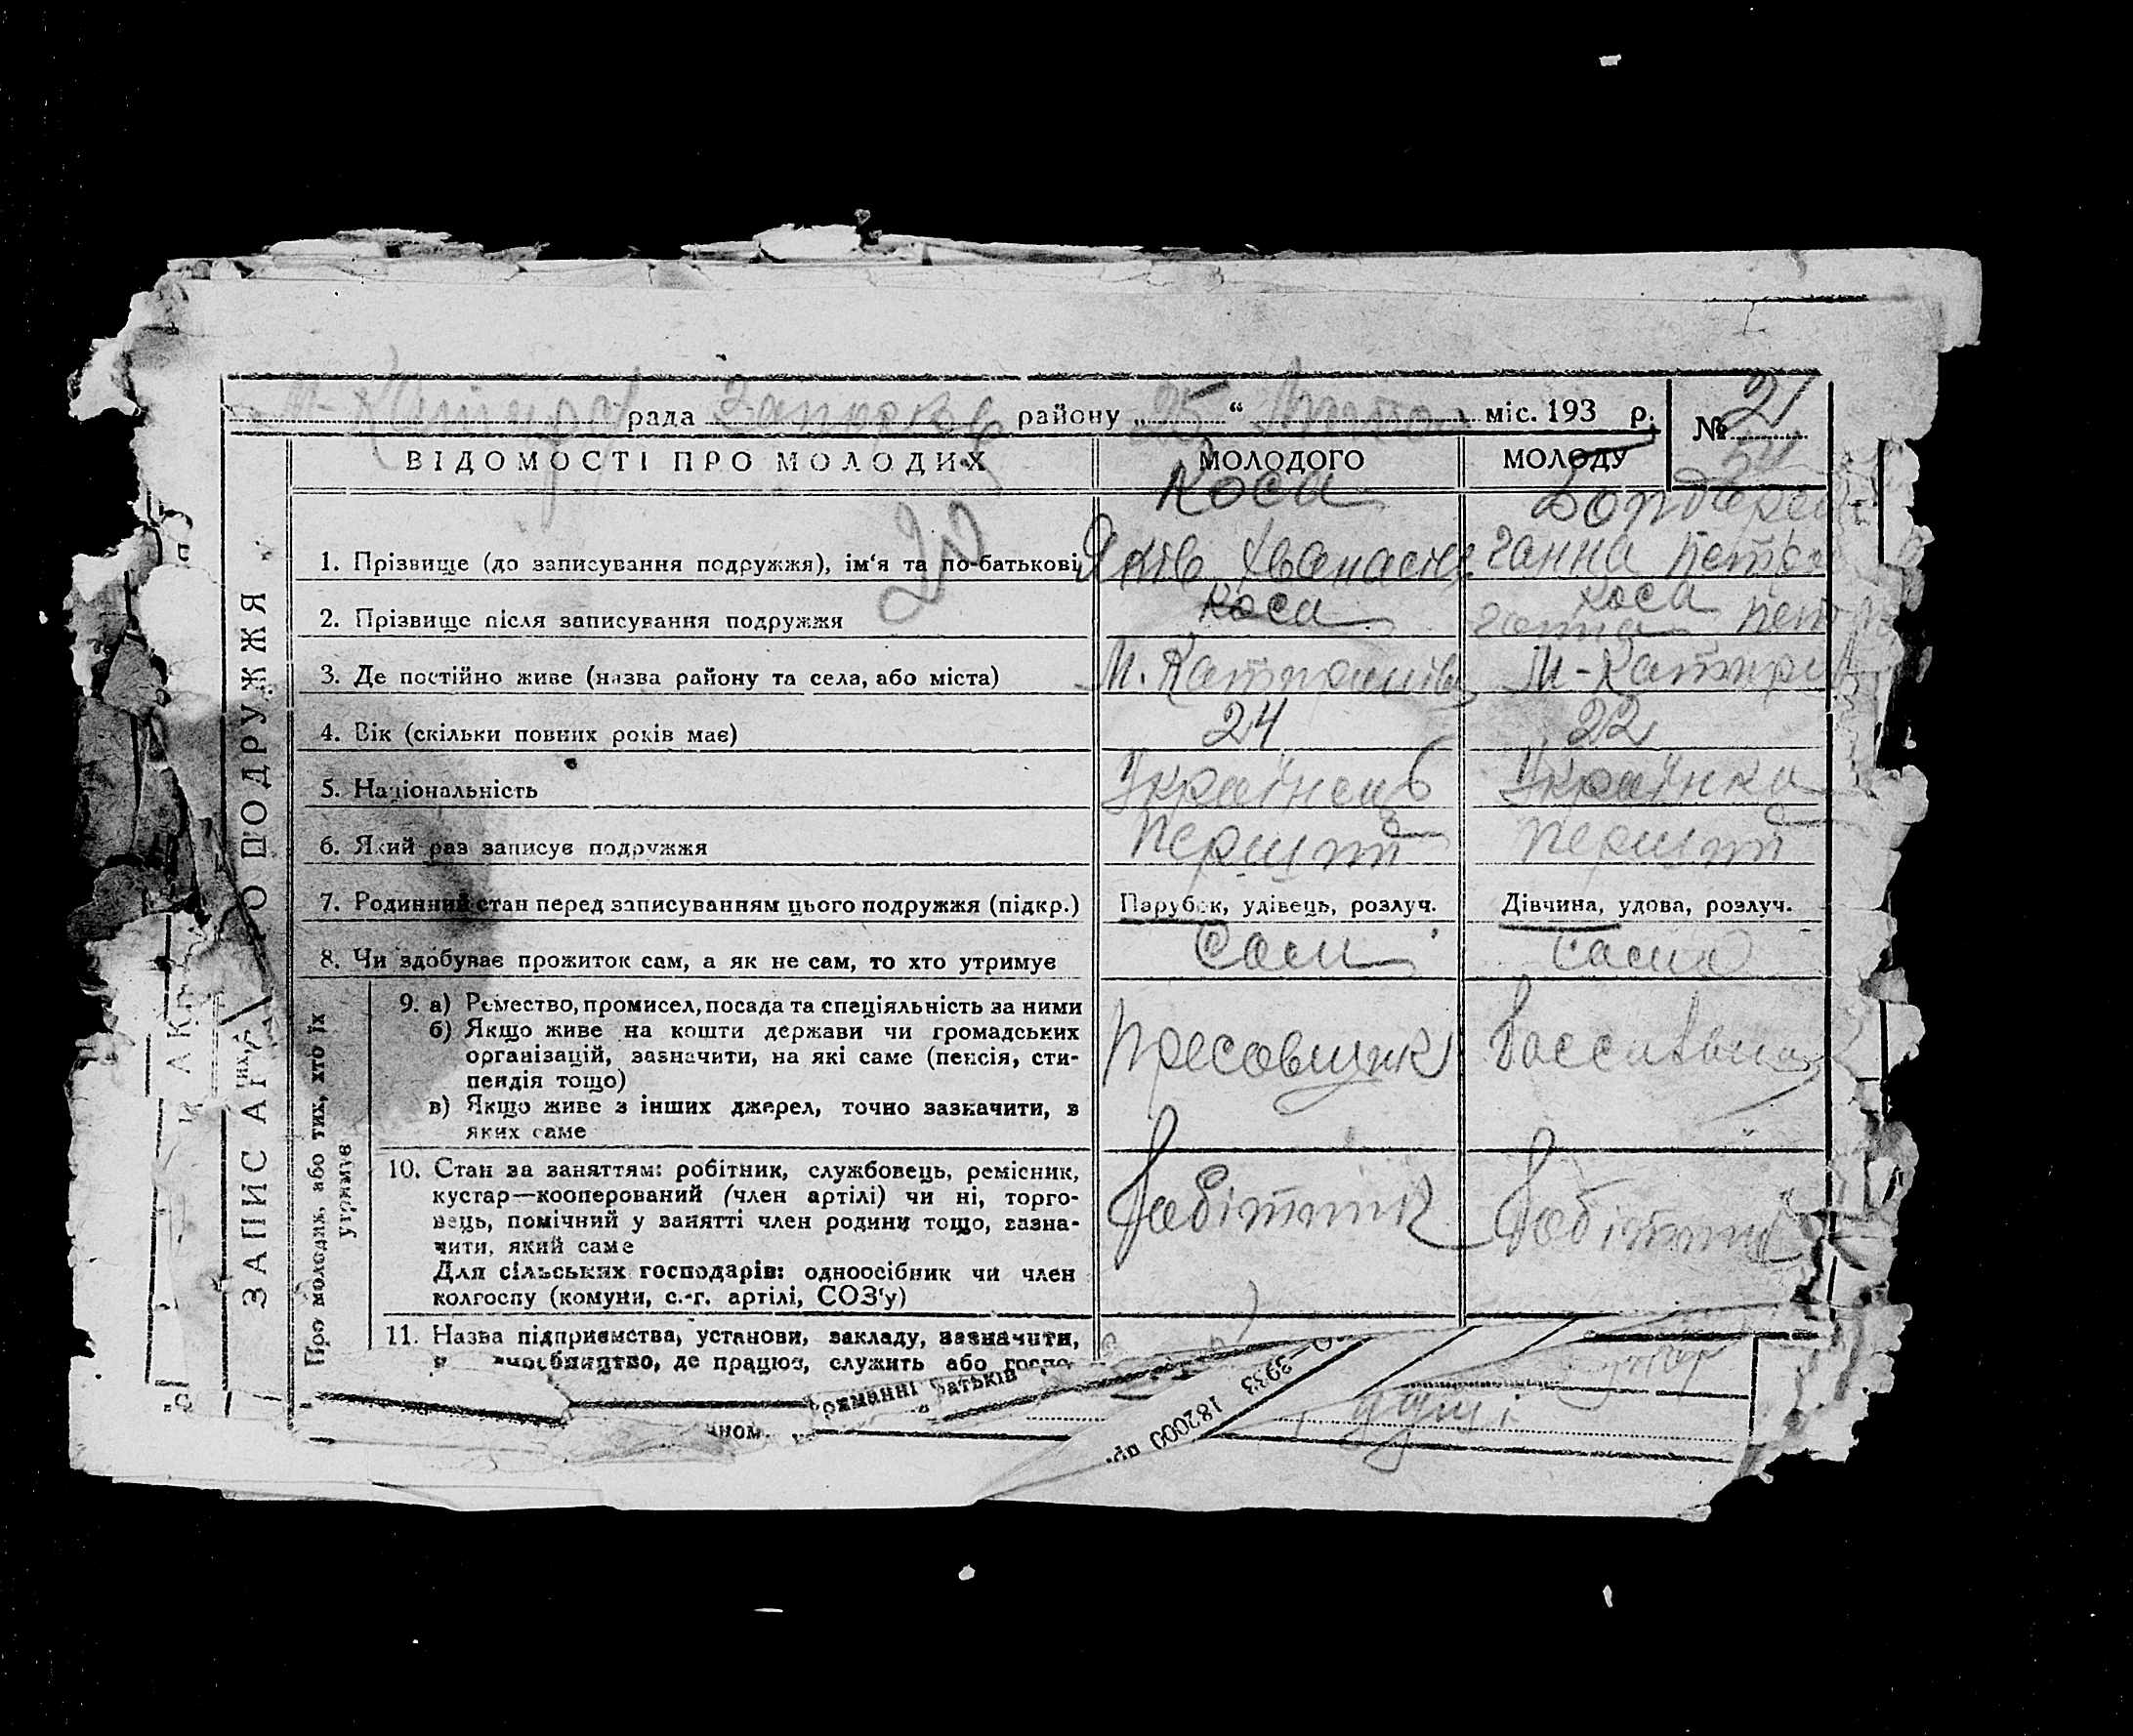 М-Катирн рада Запорізьк району „25“ Лютого міс. 193 р. № 21
ВІДОМОСТІ ПРО МОЛОДИХ МОЛОДОГО МОЛОДУ
20 Коса Бондарен
1. Прізвище (до записування подружжя), ім'я та по-батькові Яків Хванасів Ганна Петро
Коса
2. Прізвище після записування подружжя Коса Ганна Петр
3. Де постійно живе (назва району та села, або міста) М. Катиринівк М-Катири
4. Вік (скільки повних років має) 24 22
5. Національність Українець Українка
6. Який раз записує подружжя перший перший
7. Родинний стан перед записуванням цього подружжя (підкр.) Парубок, удівець, розлуч. Дівчина, удова, розлуч.
8. Чи здобуває прожиток сам, а як не сам, то хто утримує Сам сама
ЗАПИС АК О ПОДРУЖЖЯ
Про молодих, або тих, хто їх утримує
9. а) Ремество, промисел, посада та спеціяльність за ними
б) Якщо живе на кошти держави чи громадських
організацій, зазначити, на які саме (пенсія, сти- пресовщик
пендія тощо)
в) Якщо живе з інших джерел, точно зазначити, з
яких саме
10. Стан за заняттям: робітник, службовець, ремісник,
кустар—кооперований (член артілі) чи ні, торго- Робітник Робітни
вець, помічний у занятті член родини тощо, зазна-
чити, який саме
Для сільських господарів: одноосібник чи член
колгоспу (комуни, с.-г. артілі, СОЗ'у)
11. Назва підприємства, установи, закладу, зазначити,
де працює, служить або
риманні батьків
3933
182000 пр.